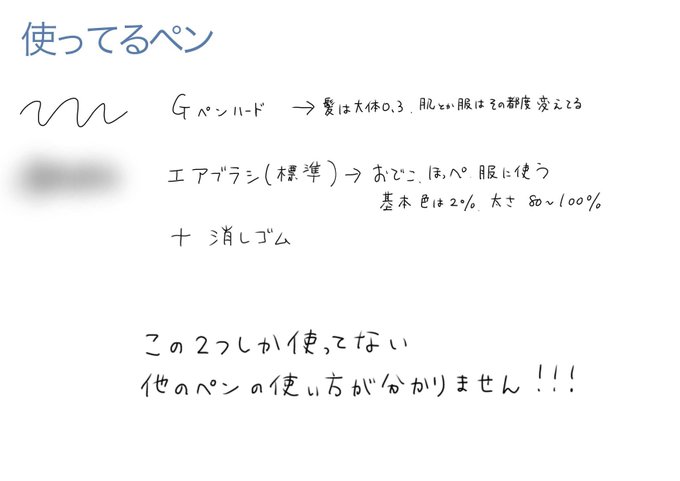 使ってるペン
Gペンハード → 髪は大体0.3. 肌とか服はその都度変えてる
エアブラシ(標準) → おでこ、ほっぺ 服に使う
基本色は2%. 太さ 80～100%
＋ 消しゴム
この2つしか使ってない
他のペンの使い方が分かりません!!!